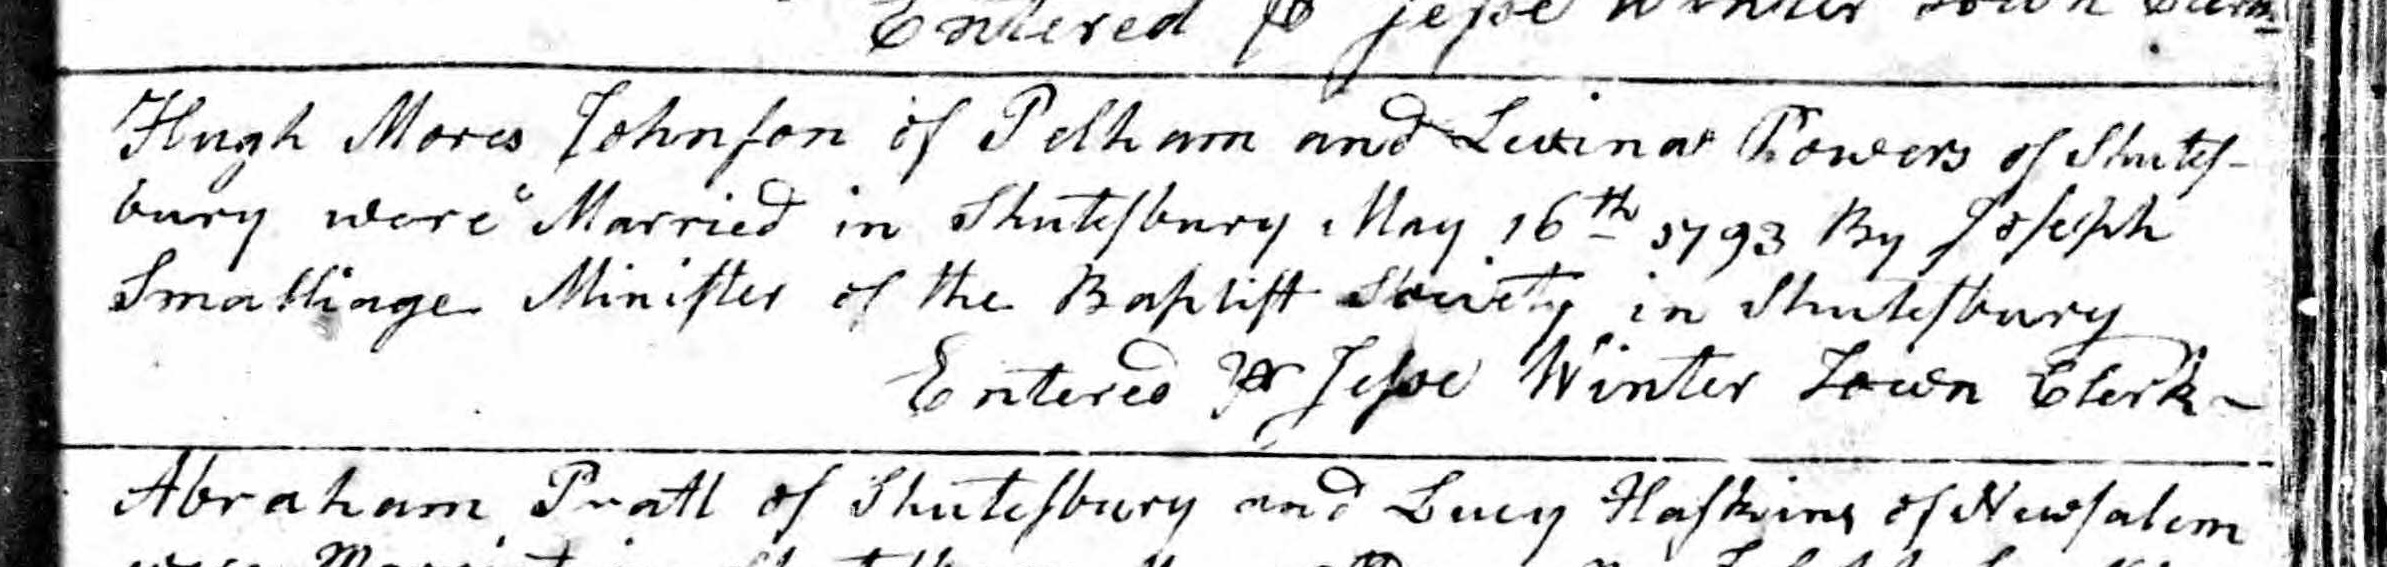 Entered ⅌ Jeſse Winter Town Clerk
Hugh Mores Johnſon of Pelham and Levina Powers of Shuteſ-
bury were Married in Shuteſbury May 16th 1793 By Joſeph
Smalliage Miniſter of the Baptiſt Society in Shuteſbury
Entered ⅌ Jeſse Winter Town Clerk
Abraham Pratt of Shuteſbury and Lucy Haſkins of Newſalem
were